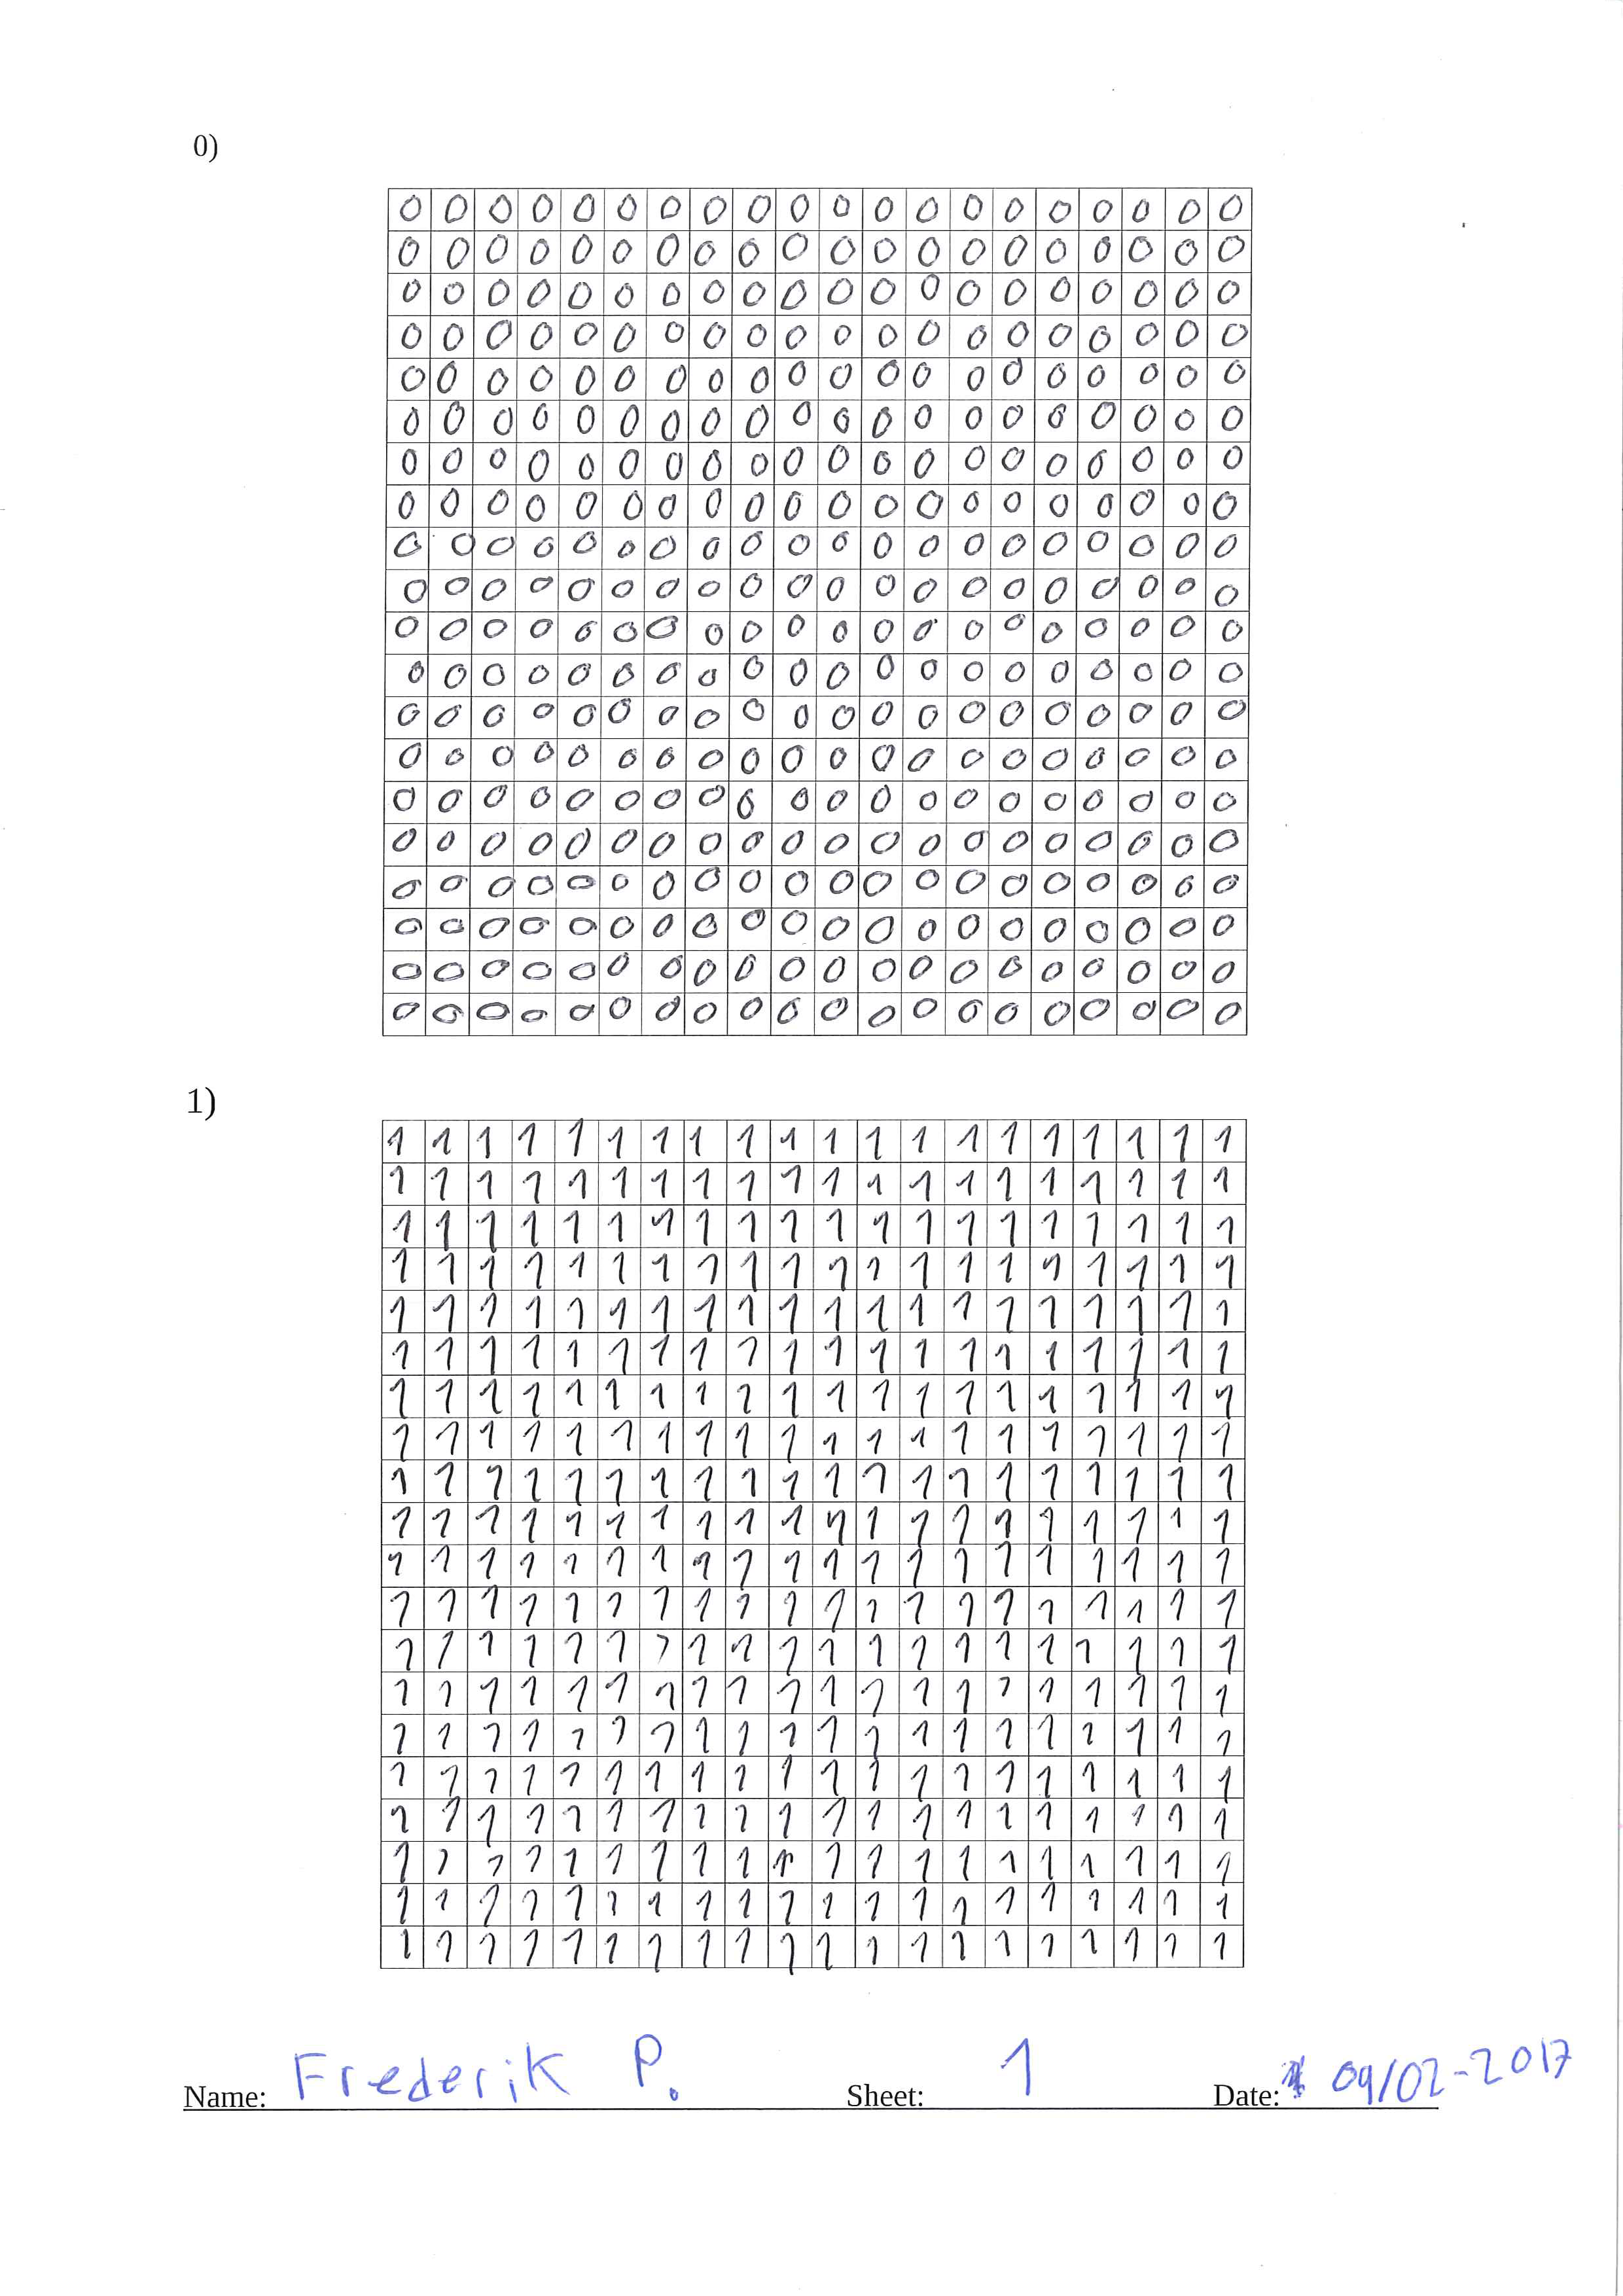 0)
0 0 0 0 0 0 0 0 0 0 0 0 0 0 0 0 0 0 0 0
0 0 0 0 0 0 0 0 0 0 0 0 0 0 0 0 0 0 0 0
0 0 0 0 0 0 0 0 0 0 0 0 0 0 0 0 0 0 0 0
0 0 0 0 0 0 0 0 0 0 0 0 0 0 0 0 0 0 0 0
0 0 0 0 0 0 0 0 0 0 0 0 0 0 0 0 0 0 0 0
0 0 0 0 0 0 0 0 0 0 0 0 0 0 0 0 0 0 0 0
0 0 0 0 0 0 0 0 0 0 0 0 0 0 0 0 0 0 0 0
0 0 0 0 0 0 0 0 0 0 0 0 0 0 0 0 0 0 0 0
0 0 0 0 0 0 0 0 0 0 0 0 0 0 0 0 0 0 0 0
0 0 0 0 0 0 0 0 0 0 0 0 0 0 0 0 0 0 0 0
0 0 0 0 0 0 0 0 0 0 0 0 0 0 0 0 0 0 0 0
0 0 0 0 0 0 0 0 0 0 0 0 0 0 0 0 0 0 0 0
0 0 0 0 0 0 0 0 0 0 0 0 0 0 0 0 0 0 0 0
0 0 0 0 0 0 0 0 0 0 0 0 0 0 0 0 0 0 0 0
0 0 0 0 0 0 0 0 0 0 0 0 0 0 0 0 0 0 0 0
0 0 0 0 0 0 0 0 0 0 0 0 0 0 0 0 0 0 0 0
0 0 0 0 0 0 0 0 0 0 0 0 0 0 0 0 0 0 0 0
0 0 0 0 0 0 0 0 0 0 0 0 0 0 0 0 0 0 0 0
0 0 0 0 0 0 0 0 0 0 0 0 0 0 0 0 0 0 0 0
0 0 0 0 0 0 0 0 0 0 0 0 0 0 0 0 0 0 0 0
1)
1 1 1 1 1 1 1 1 1 1 1 1 1 1 1 1 1 1 1 1
1 1 1 1 1 1 1 1 1 1 1 1 1 1 1 1 1 1 1 1
1 1 1 1 1 1 1 1 1 1 1 1 1 1 1 1 1 1 1 1
1 1 1 1 1 1 1 1 1 1 1 1 1 1 1 1 1 1 1 1
1 1 1 1 1 1 1 1 1 1 1 1 1 1 1 1 1 1 1 1
1 1 1 1 1 1 1 1 1 1 1 1 1 1 1 1 1 1 1 1
1 1 1 1 1 1 1 1 1 1 1 1 1 1 1 1 1 1 1 1
1 1 1 1 1 1 1 1 1 1 1 1 1 1 1 1 1 1 1 1
1 1 1 1 1 1 1 1 1 1 1 1 1 1 1 1 1 1 1 1
1 1 1 1 1 1 1 1 1 1 1 1 1 1 1 1 1 1 1 1
1 1 1 1 1 1 1 1 1 1 1 1 1 1 1 1 1 1 1 1
1 1 1 1 1 1 1 1 1 1 1 1 1 1 1 1 1 1 1 1
1 1 1 1 1 1 1 1 1 1 1 1 1 1 1 1 1 1 1 1
1 1 1 1 1 1 1 1 1 1 1 1 1 1 1 1 1 1 1 1
1 1 1 1 1 1 1 1 1 1 1 1 1 1 1 1 1 1 1 1
1 1 1 1 1 1 1 1 1 1 1 1 1 1 1 1 1 1 1 1
1 1 1 1 1 1 1 1 1 1 1 1 1 1 1 1 1 1 1 1
1 1 1 1 1 1 1 1 1 1 1 1 1 1 1 1 1 1 1 1
1 1 1 1 1 1 1 1 1 1 1 1 1 1 1 1 1 1 1 1
1 1 1 1 1 1 1 1 1 1 1 1 1 1 1 1 1 1 1 1
Name: Frederik P. Sheet: 1 Date: 09/02-2017